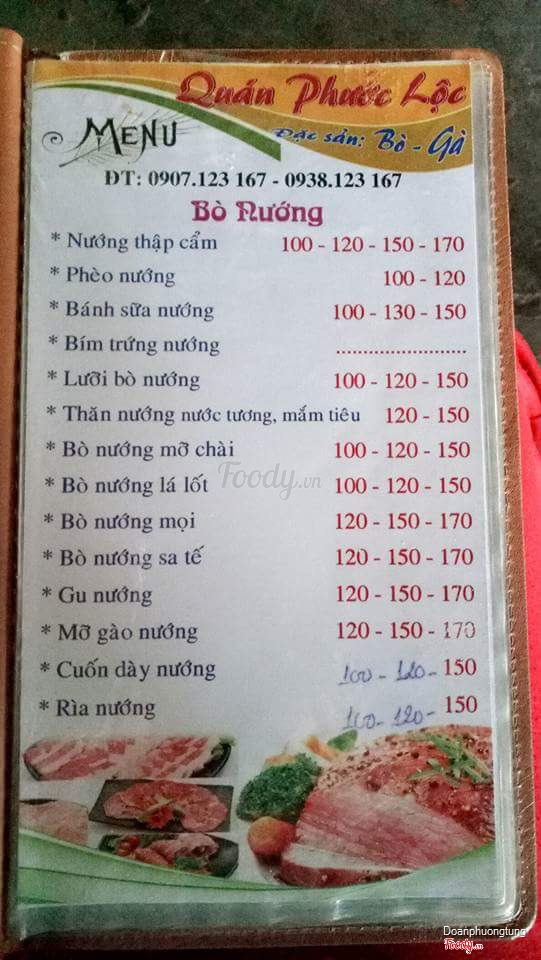 Quán Phước Lộc
MENU
Đặc sản: Bò - Gà
ĐT: 0907.123 167 - 0938.123 167
Bò Nướng
* Nướng thập cẩm 100 - 120 - 150 - 170
* Phèo nướng 100 - 120
* Bánh sữa nướng 100 - 130 - 150
* Bím trứng nướng ........................
* Lưỡi bò nướng 100 - 120 - 150
* Thăn nướng nước tương, mắm tiêu 120 - 150
* Bò nướng mỡ chài 100 - 120 - 150
Foody.vn
* Bò nướng lá lốt 100 - 120 - 150
* Bò nướng mọi 120 - 150 - 170
* Bò nướng sa tế 120 - 150 - 170
* Gu nướng 120 - 150 - 170
* Mỡ gào nướng 120 - 150 - 170
* Cuốn dày nướng 100 - 120 - 150
* Rìa nướng 100 - 120 - 150
Doanphuongtung
Foody.vn